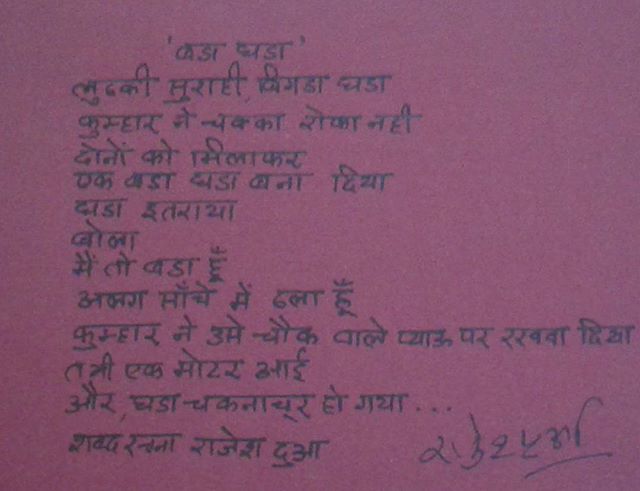 'बडा घडा'
लुढकी सुराही, बिगडा घडा
कुम्हार ने चक्का रोका नही
दोनों को मिलाकर
एक बडा घडा बना दिया
घडा इतराया
बोला
मैं तो बडा हूँ
अलग साँचे में ढला हूँ
कुम्हार ने उसे चौक वाले प्याऊ पर रखवा दिया
तभी एक मोटर आई
और, घडा चकनाचूर हो गया...
शब्द रचना राजेश दुआ